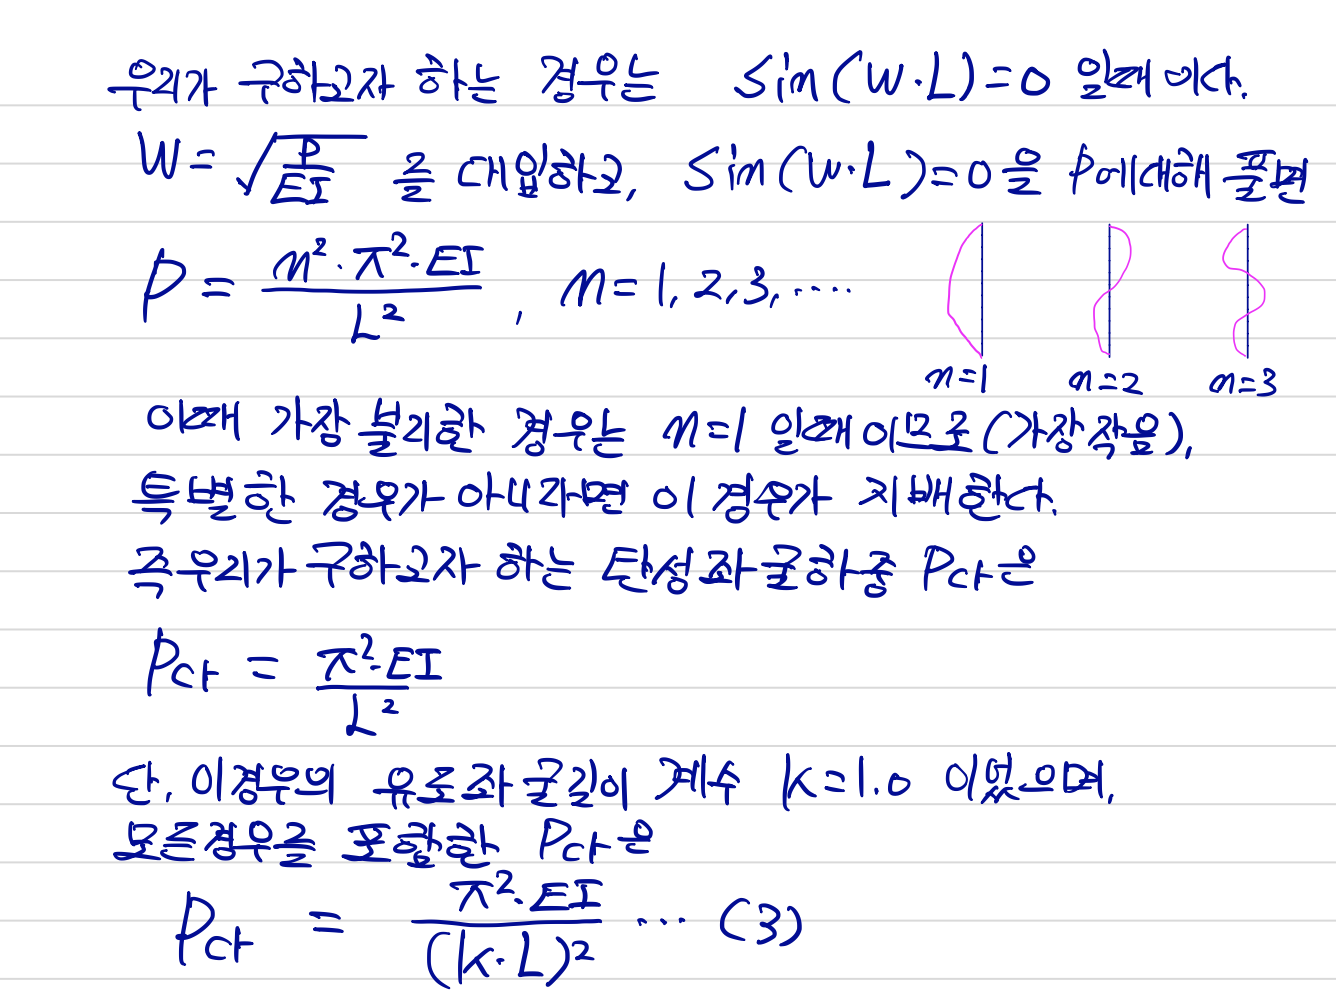 우리가 구하고자 하는 경우는 Sin(W·L)=0 일때 이다.
W=√(P/EI) 를 대입하고, Sin(W·L)=0 을 P에대해 풀면
P = n²·π²·EI / L² , n=1, 2, 3, ····
n=1 n=2 n=3
이때 가장 불리한 경우는 n=1 일때 이므로 (가장 작음),
특별한 경우가 아니라면 이 경우가 지배한다.
즉 우리가 구하고자 하는 탄성좌굴하중 Pcr은
Pcr = π²·EI / L²
단, 이경우의 유로좌굴길이 계수 k=1.0 이었으며,
모든경우를 포함한 Pcr은
Pcr = π²·EI / (k·L)² ··· (3)